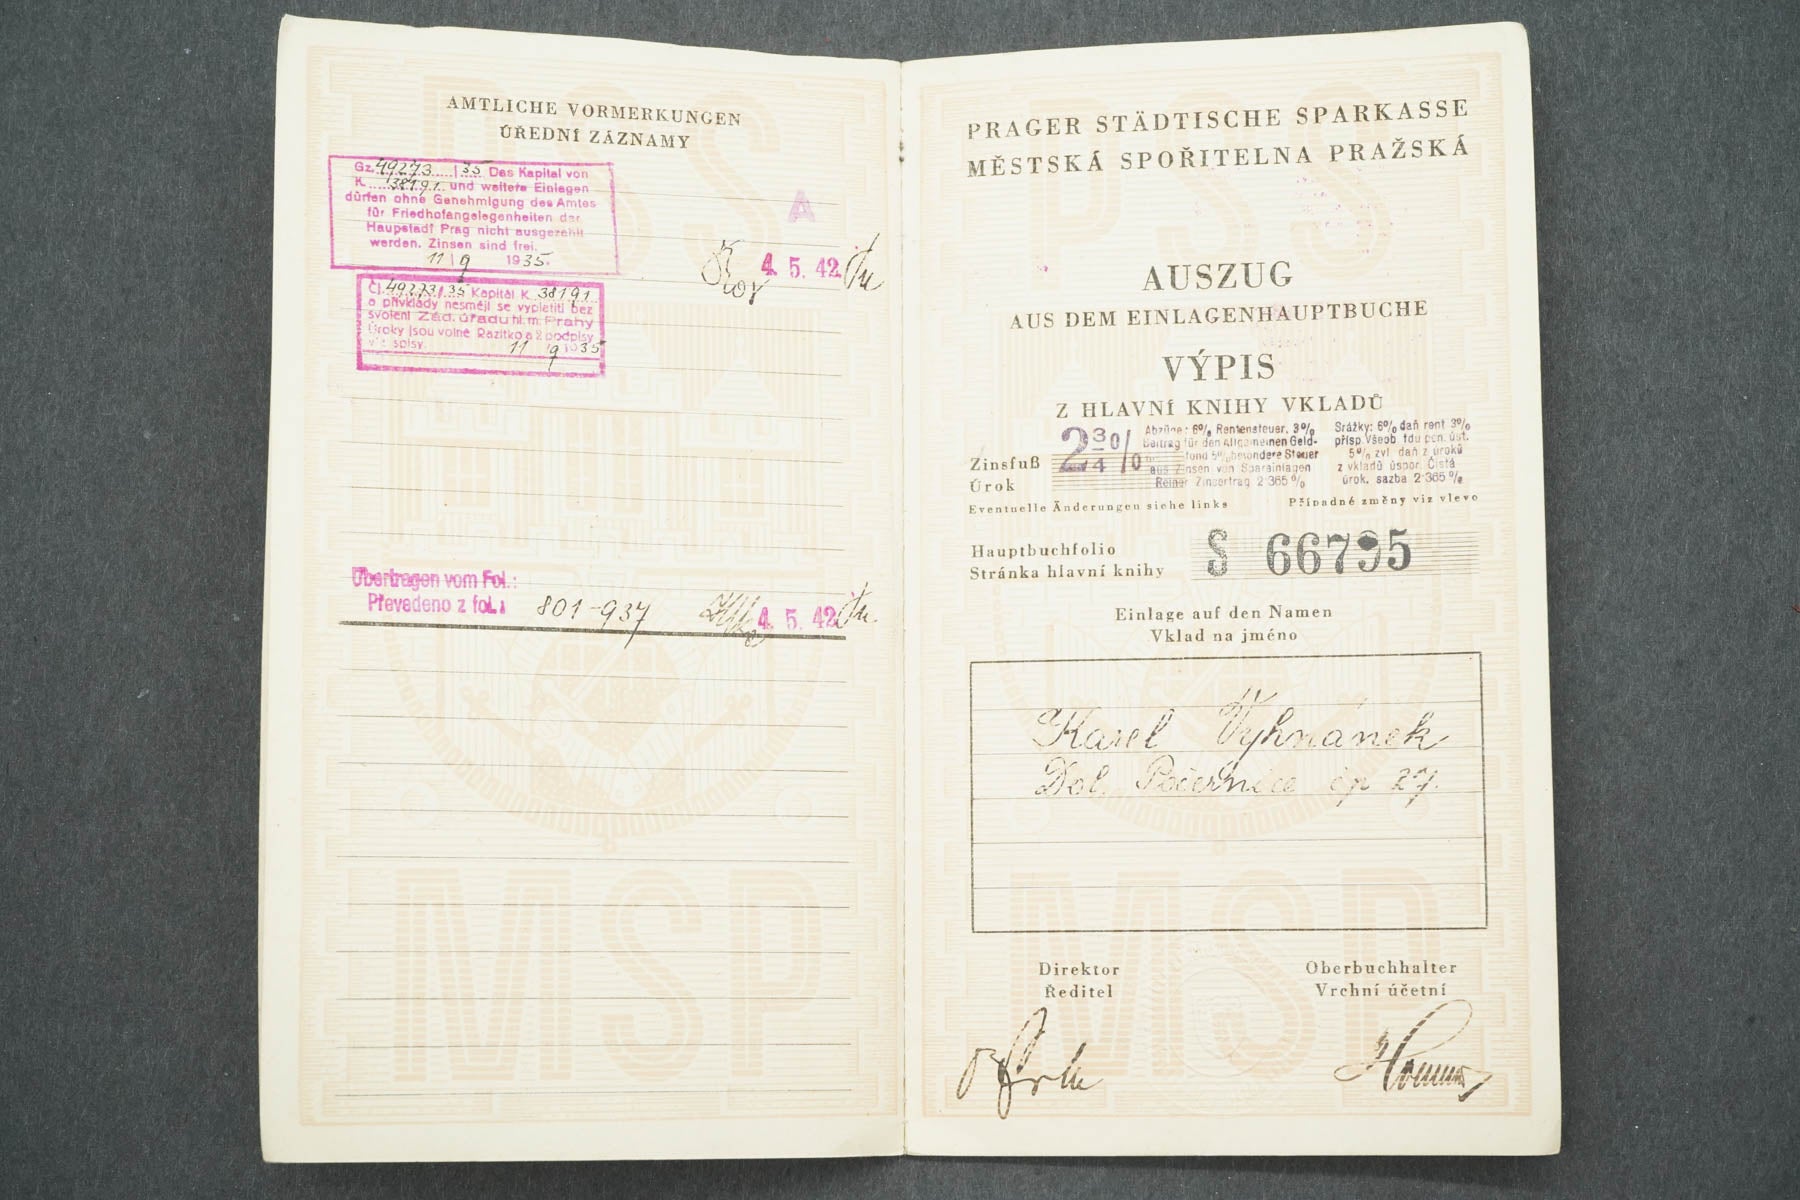 AMTLICHE VORMERKUNGEN
ÚŘEDNÍ ZÁZNAMY
Gz. 49273 / 35 Das Kapital von
K. 38191 und weitere Einlagen
dürfen ohne Genehmigung des Amtes
für Friedhofangelegenheiten der
Haupstadt Prag nicht ausgezahlt
werden. Zinsen sind frei.
11 / 9 1935.
A
4. 5. 42.
Čj. 49273/35 Kapitál K 38191
a přívklady nesmějí se vyplatiti bez
svolení Zád. úřadu hl. m. Prahy
Úroky jsou volné Razítko a 2 podpisy
viz spisy. 11 9 1935
Übertragen vom Fol.:
Převedeno z fol.: 801-937
4. 5. 42
PRAGER STÄDTISCHE SPARKASSE
MĚSTSKÁ SPOŘITELNA PRAŽSKÁ
AUSZUG
AUS DEM EINLAGENHAUPTBUCHE
VÝPIS
Z HLAVNÍ KNIHY VKLADŮ
Zinsfuß
Úrok
2 3/4 %
Abzüge: 6% Rentensteuer, 3%
Beitrag für den Allgemeinen Geld-
fond 5% besondere Steuer
aus Zinsen von Spareinlagen
Reiner Zinsertrag 2·365 %
Srážky: 6% daň rent 3%
přísp. Všeob fdu pen. úst.
5% zvl daň z úroků
z vkladů úspor. Čistá
úrok. sazba 2·365 %
Eventuelle Änderungen siehe links
Případné změny viz vlevo
Hauptbuchfolio
Stránka hlavní knihy
S 66795
Einlage auf den Namen
Vklad na jméno
Karel Vyhnánek
Dol. Počernice čp 27.
Direktor
Ředitel
Oberbuchhalter
Vrchní účetní
PSS
MSP
PSS
MSP